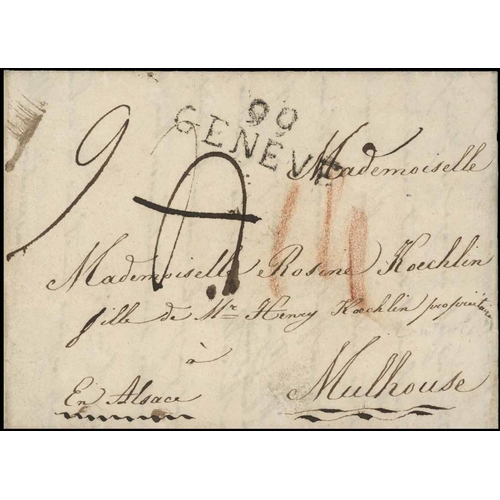 99
GENÈVE
9
Mademoiselle
Mademoiselle Rosine Koechlin
fille de Mr Henry Koechlin propriétaire
à
Mulhouse
En Alsace